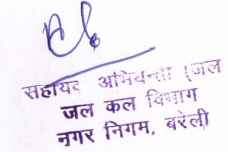 सहायक अभियन्ता (जल
जल कल विभाग
नगर निगम, बरेली